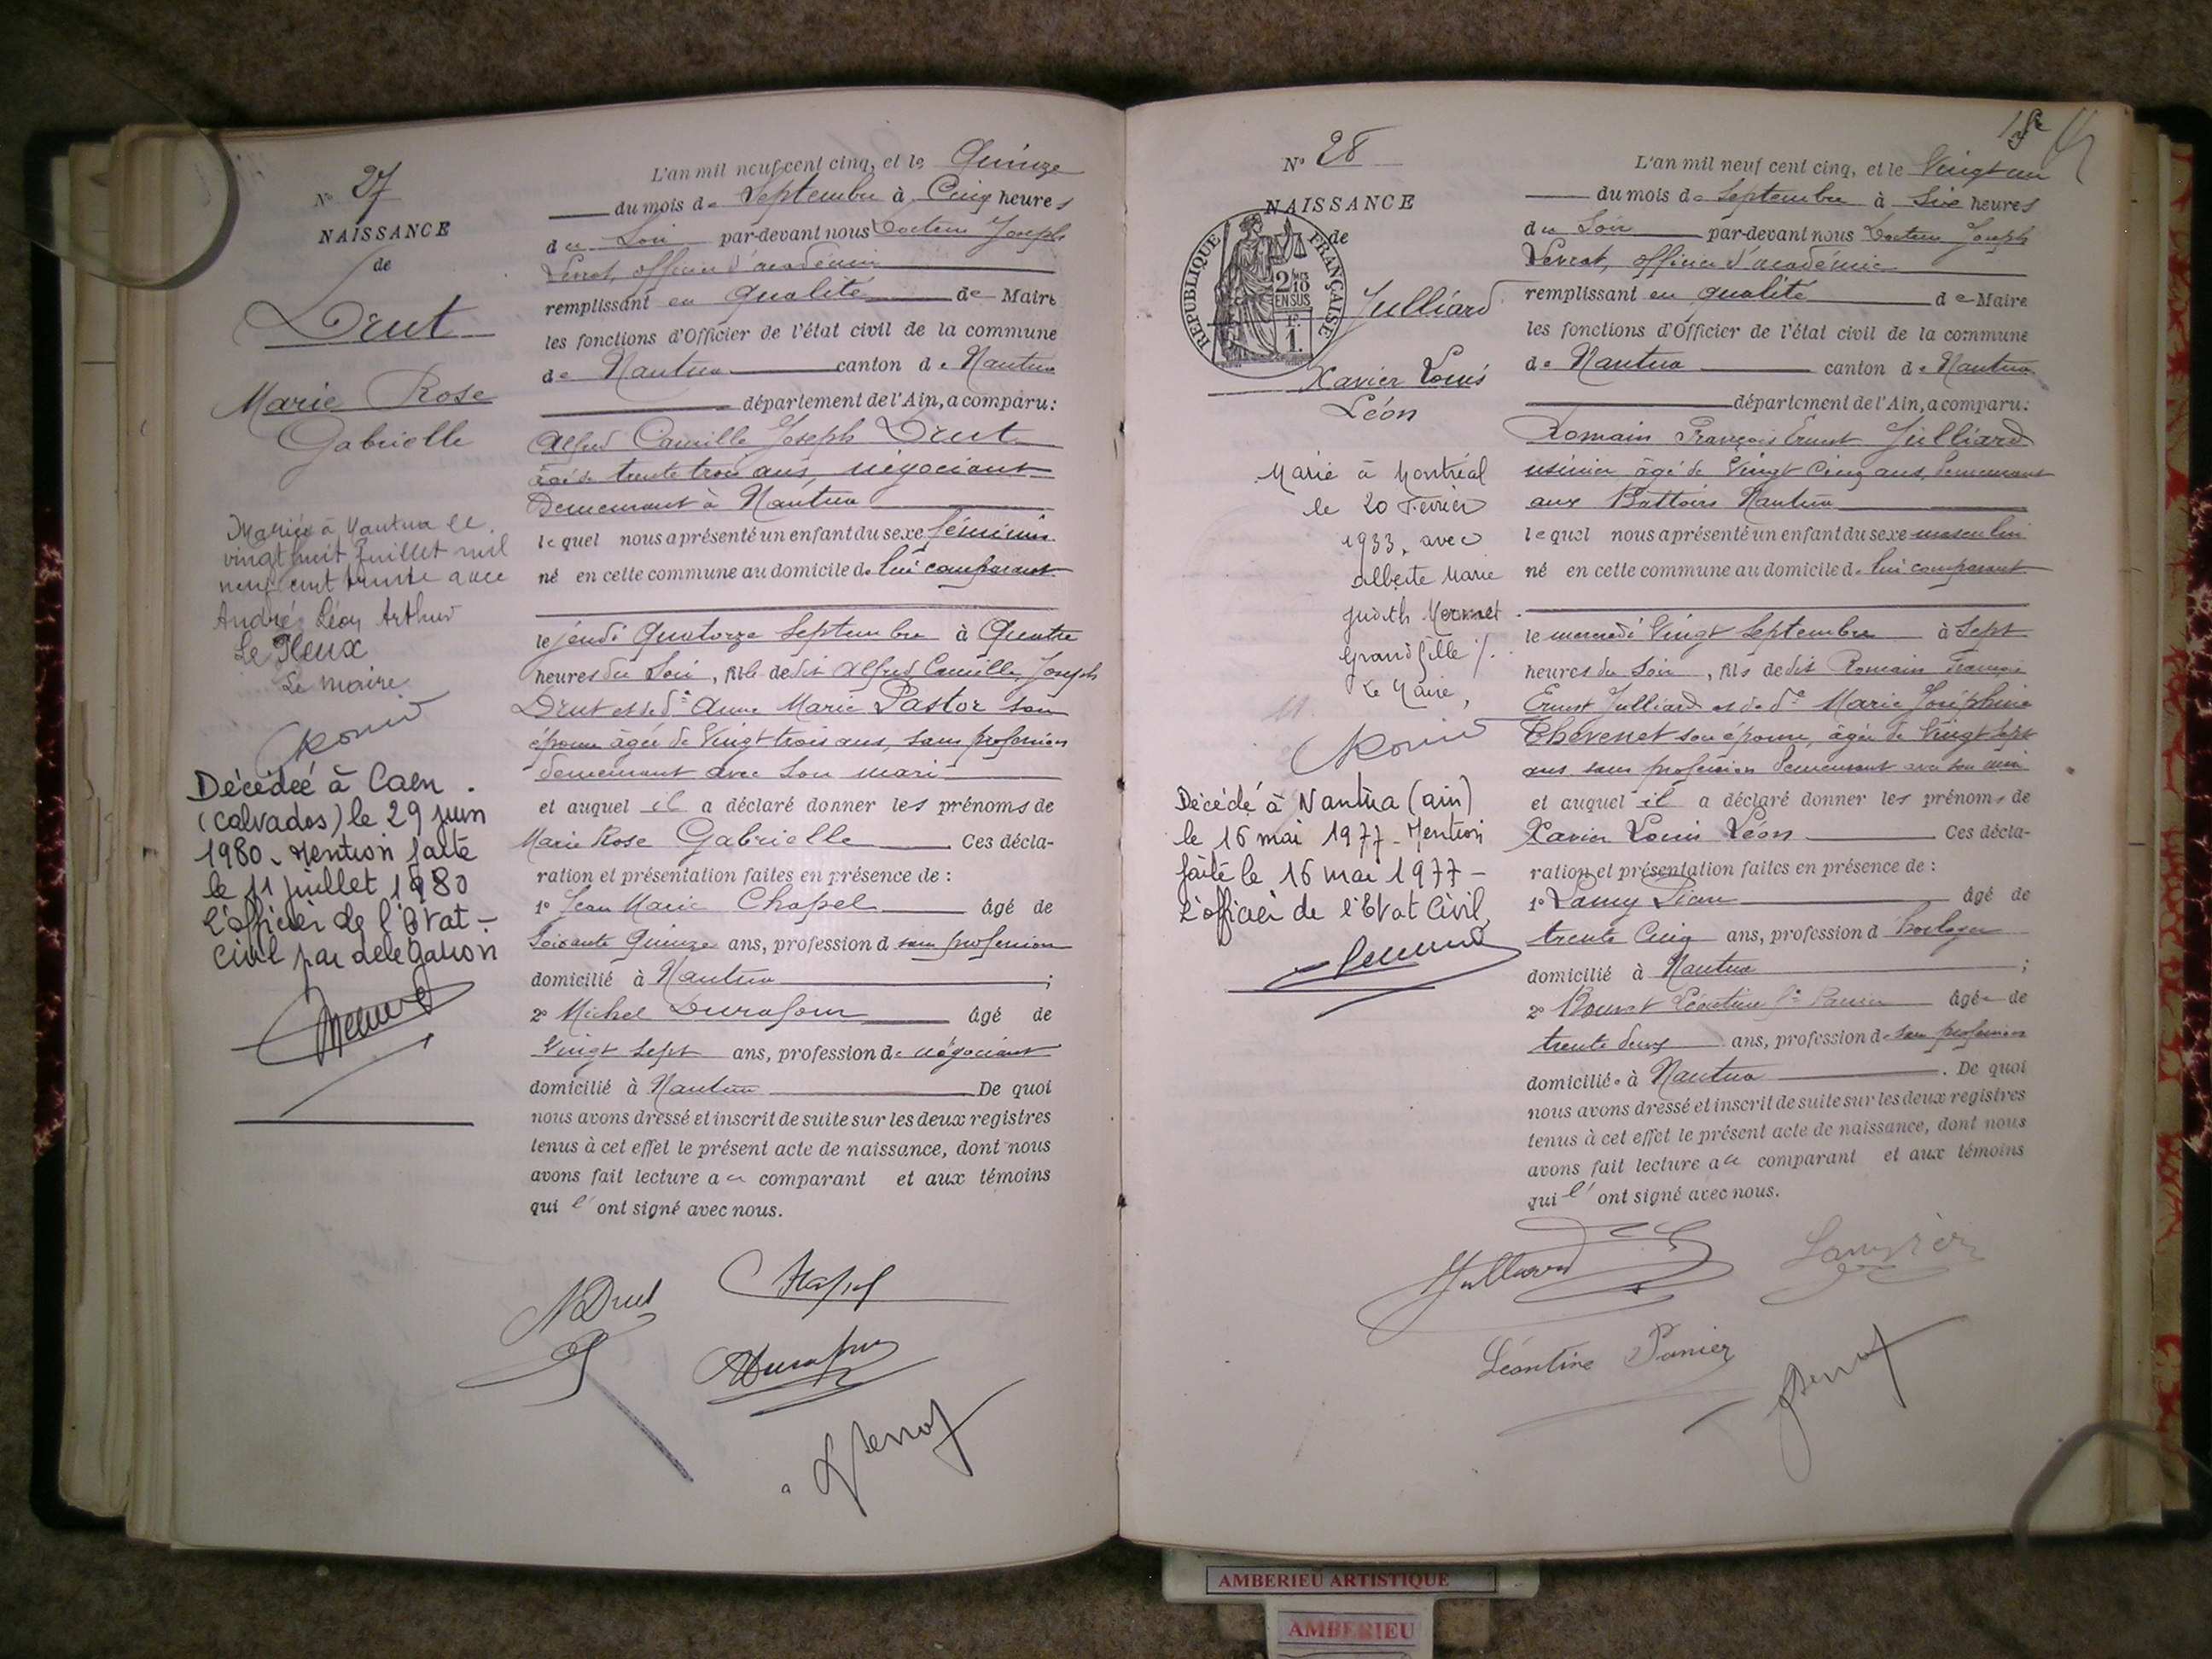 N° 27
NAISSANCE
de
Drut
Marie Rose
Gabrielle
Mariée à Nantua le
vingt huit Juillet mil
neuf cent trente avec
André Léon Arthur
Le Fleux
Le maire
Décédée à Caen
(calvados) le 29 juin
1980. Mention faite
le 11 juillet 1980
L'officier de l'Etat-
civil par délégation
L'an mil neuf cent cinq, et le Quinze
du mois de Septembre à Cinq heures
du Soir par-devant nous Docteur Joseph
officier d'académie
remplissant en qualité de Maire
les fonctions d'Officier de l'état civil de la commune
de Nantua canton de Nantua
département de l'Ain, a comparu:
Alfred Camille Joseph Drut
âgé de trente trois ans, négociant
Demeurant à Nantua
lequel nous a présenté un enfant du sexe féminin
né en cette commune au domicile de lui comparant
le jeudi Quatorze Septembre à Quatre
heures du Soir, fille de dit Alfred Camille Joseph
Drut et de de Anne Marie Pastor son
épouse âgée de Vingt trois ans, sans profession
demeurant avec son mari
et auquel il a déclaré donner les prénoms de
Marie Rose Gabrielle Ces décla-
ration et présentation faites en présence de :
1° Jean Marie Chapel âgé de
Soixante Quinze ans, profession d sans profession
domicilié à Nantua ;
2° Michel Durafour âgé de
Vingt Sept ans, profession de négociant
domicilié à Nantua De quoi
nous avons dressé et inscrit de suite sur les deux registres
tenus à cet effet le présent acte de naissance, dont nous
avons fait lecture au comparant et aux témoins
qui l' ont signé avec nous.
Drut Chapel
Durafour
N° 28
NAISSANCE
de
REPUBLIQUE FRANÇAISE
2/10
EN SUS
1 F.
Julliard
Xavier Louis
Léon
Marié à Montréal
le 20 Février
1933, avec
Alberte Marie
Judith
Grandfille
Le Maire,
Décédé à Nantua (ain)
le 16 mai 1977 - Mention
faite le 16 mai 1977 -
L'officier de l'Etat Civil,
L'an mil neuf cent cinq, et le Vingt un
du mois de Septembre à Six heures
du Soir par-devant nous Docteur Joseph
officier d'académie
remplissant en qualité de Maire
les fonctions d'Officier de l'état civil de la commune
de Nantua canton de Nantua
département de l'Ain, a comparu:
Romain François Ernest Julliard
usinier, âgé de Vingt Cinq ans, demeurant
aux Battoirs Nantua
lequel nous a présenté un enfant du sexe masculin
né en cette commune au domicile de lui comparant
le mercredi Vingt Septembre à Sept
heures du Soir, fils de dit Romain François
Ernest Julliard et de de Marie Joséphine
Thévenet son épouse, âgée de Vingt Sept
ans sans profession demeurant avec son mari
et auquel il a déclaré donner les prénoms de
Xavier Louis Léon Ces décla-
ration et présentation faites en présence de :
1° âgé de
trente Cinq ans, profession d horloger
domicilié à Nantua ;
2° Léontine âgée de
trente deux ans, profession de sans profession
domiciliée à Nantua . De quoi
nous avons dressé et inscrit de suite sur les deux registres
tenus à cet effet le présent acte de naissance, dont nous
avons fait lecture au comparant et aux témoins
qui l' ont signé avec nous.
Julliard
Léontine Panier
AMBERIEU ARTISTIQUE
AMBERIEU